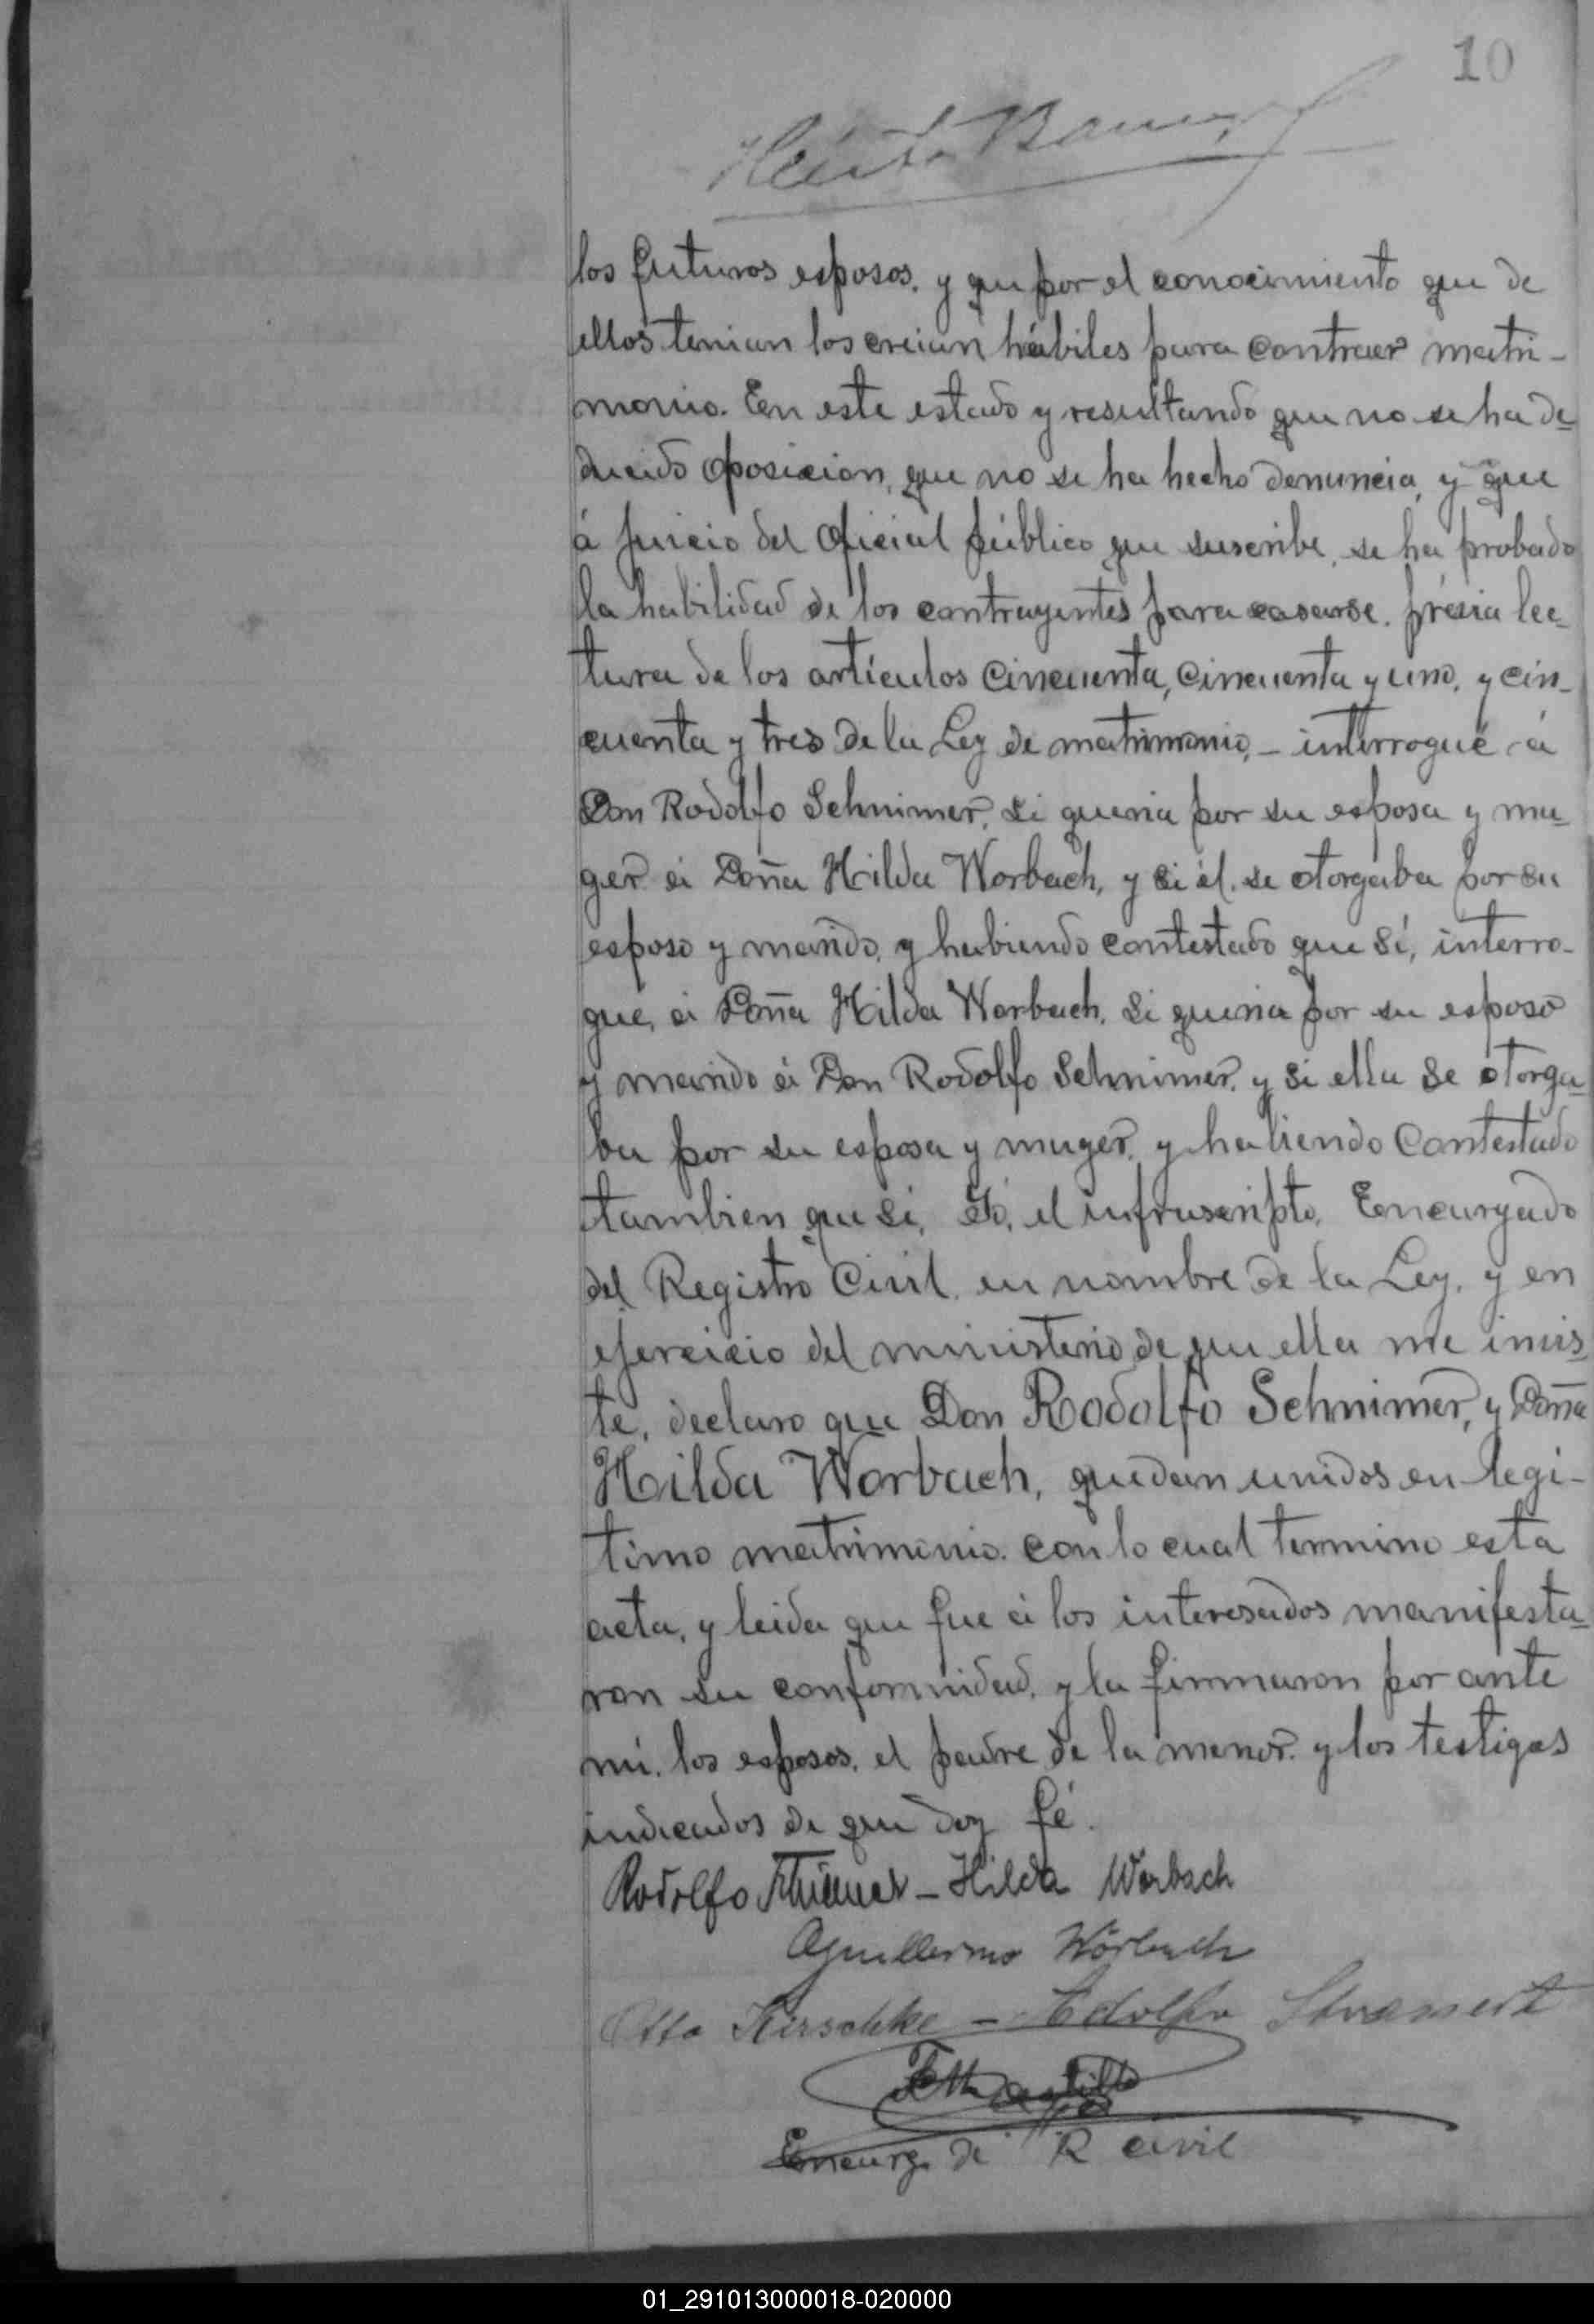 10
los futuros esposos, y que por el conocimiento que de
ellos tenian los creian hábiles para contraer matri-
monio. En este estado y resultando que no se ha de-
ducido oposicion, que no se ha hecho denuncia, y que
á juicio del oficial público que suscribe, se ha probado
la habilidad de los contrayentes para casarse, prévia lec-
tura de los artículos Cincuenta, Cincuenta y uno, y cin-
cuenta y tres de la Ley de matrimonio, - interrogué á
Don Rodolfo Schnimer, si queria por su esposa y mu-
ger á Doña Hilda Worbach, y si él, se otorgaba por su
esposo y marido, y habiendo contestado que sí, interro-
gué, á Doña Hilda Worbach, si queria por su esposo
y marido á Don Rodolfo Schnimer, y si ella se otorga-
ba por su esposa y muger, y habiendo Contestado
tambien que si, Yo, el infrascripto, Encargado
del Registro Civil, en nombre de la Ley, y en
ejercicio del ministerio de que ella me invis-
te, declaro que Don Rodolfo Schnimer, y Doña
Hilda Worbach, quedan unidos en legi-
timo matrimonio. con lo cual termino esta
acta, y leida que fue á los interesados manifesta-
ron su conformidad, y la firmaron por ante
mi, los esposos, el padre de la menor, y los testigos
indicados de que doy fé.
Rodolfo - Hilda Worbach
Guillermo Wörbach
Otto Kirschke - Adolfo
Encarg. de R civil
01_291013000018-020000